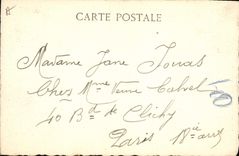 CARTE POSTALE
Madame Jane Jouas
Chez Mme Veuve Cabrel
40 Bd de Clichy
Paris